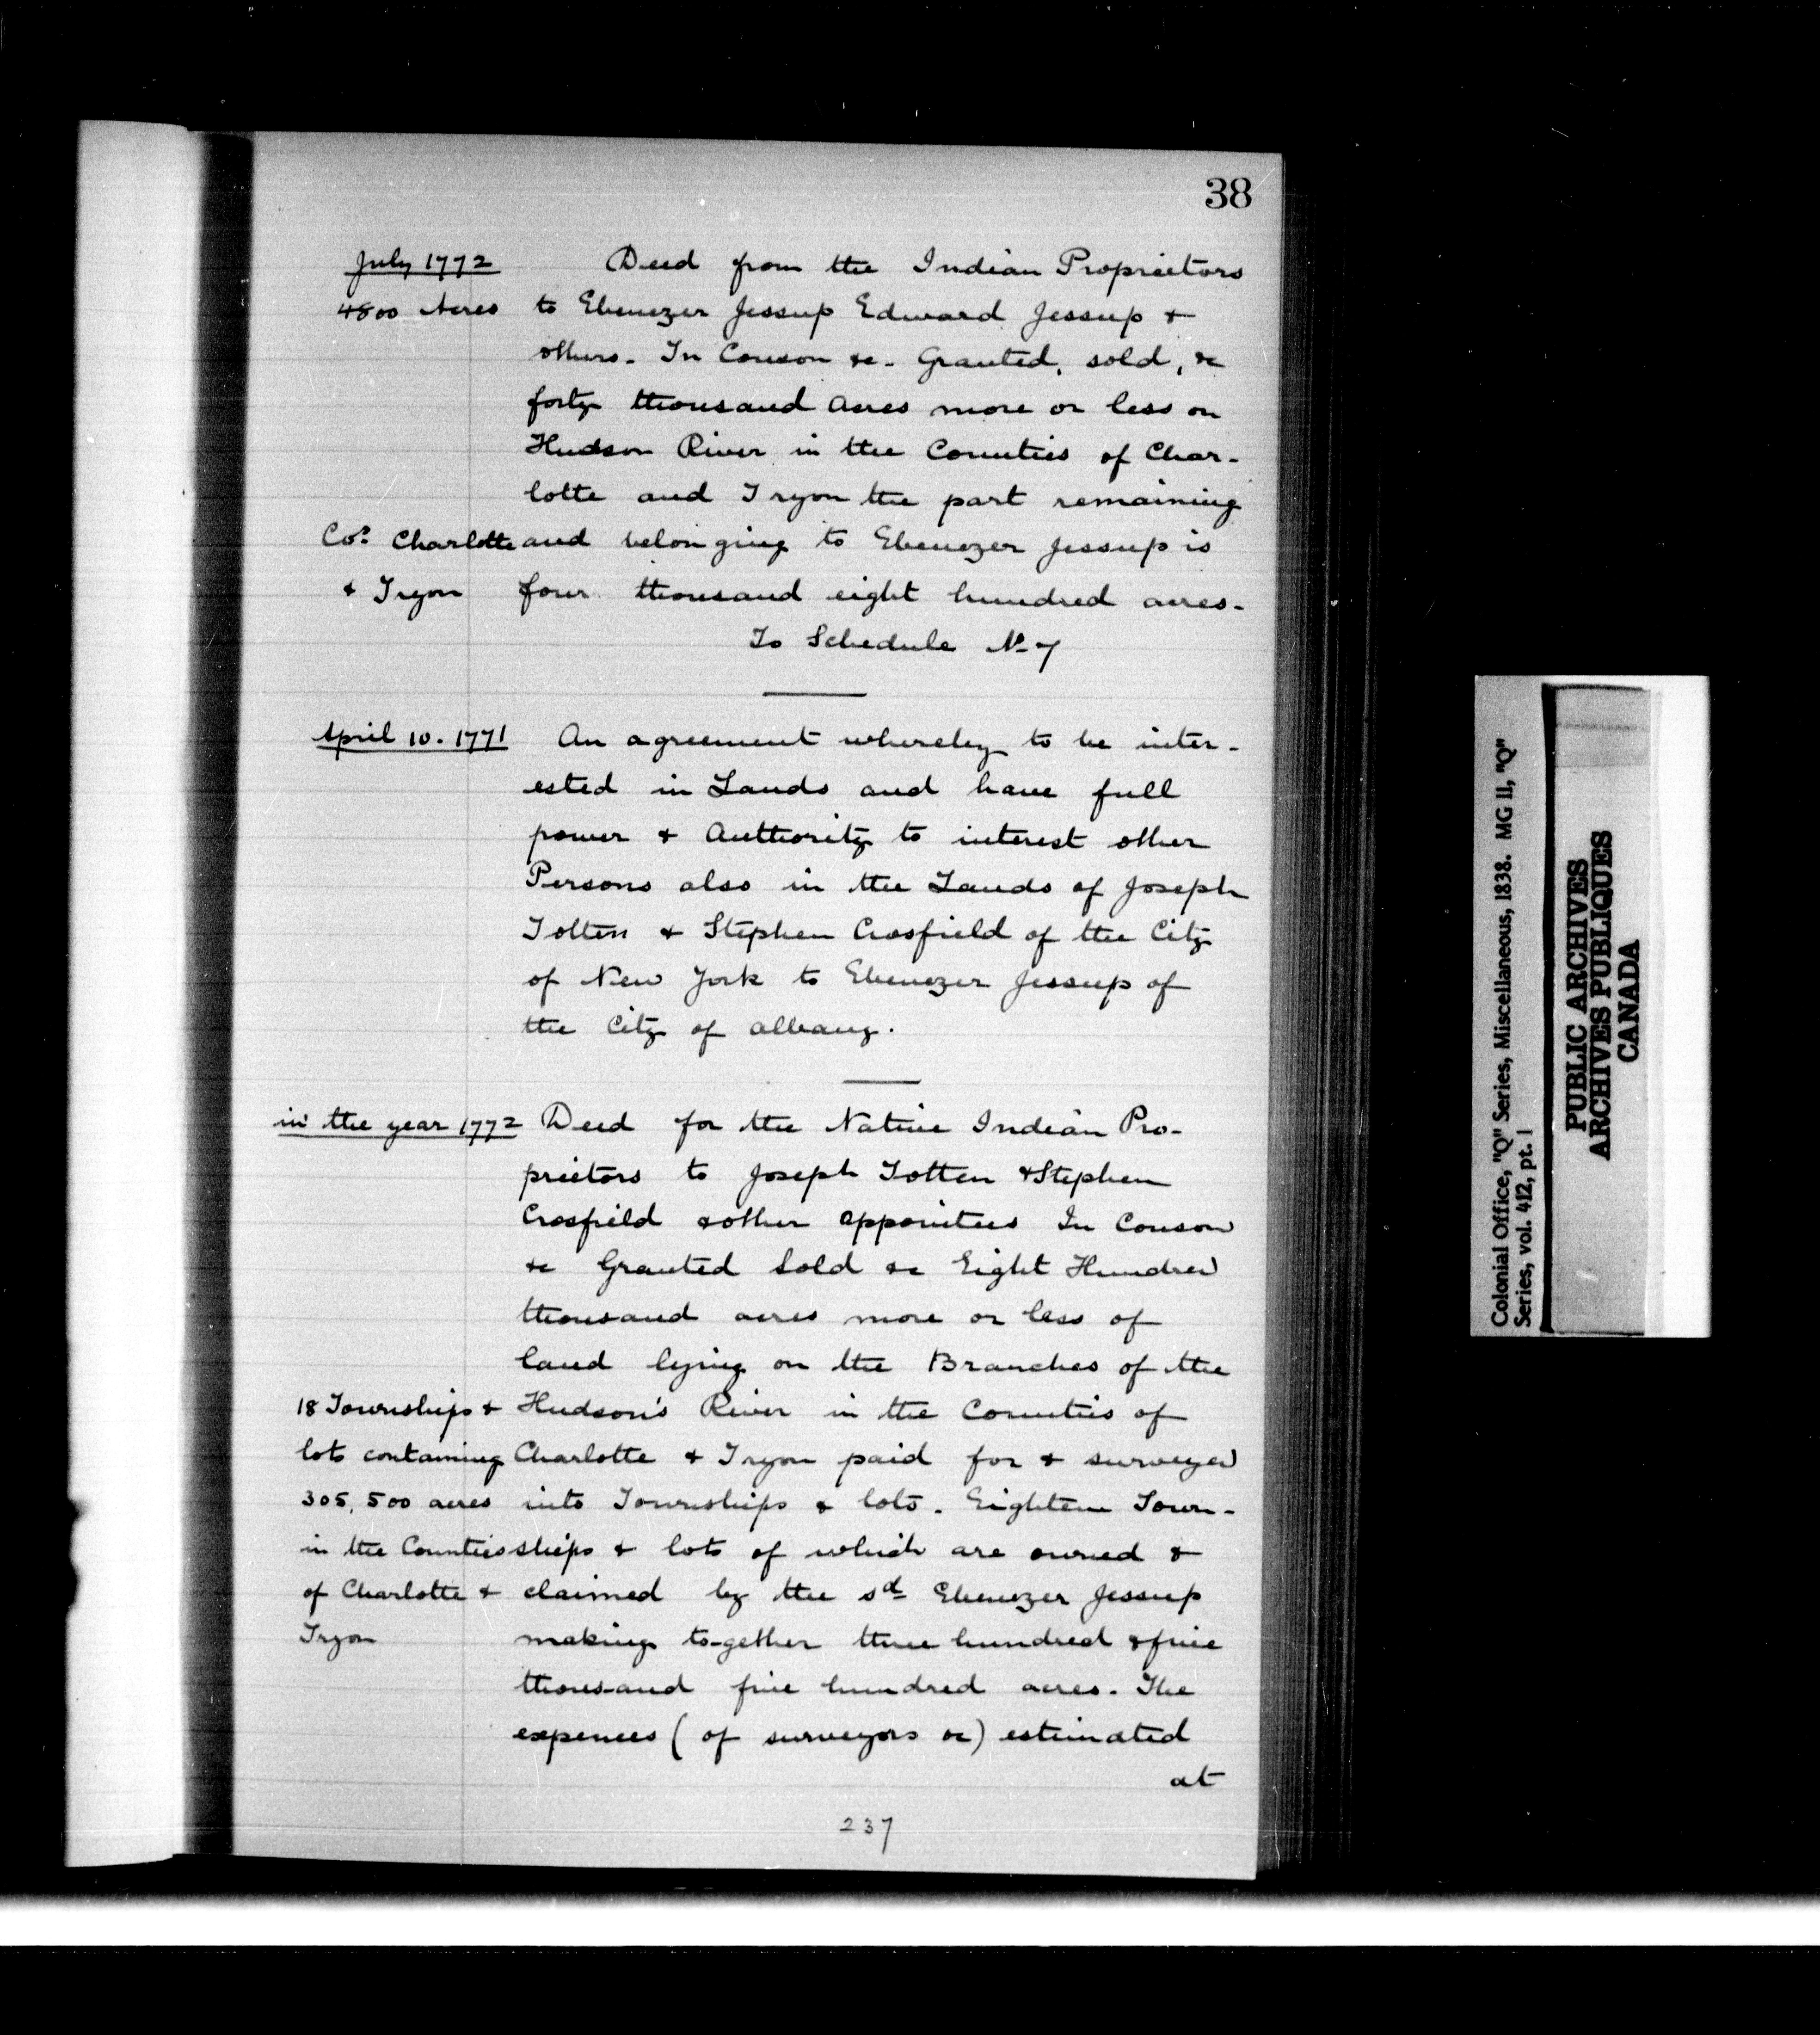 38
July 1772 Deed from the Indian Proprietors
4800 Acres to Ebenezer Jessup Edward Jessup &
others. In Conson &c. Granted, sold, &c
forty thousand acres more or less on
Hudson River in the Counties of Char-
lotte and Tryon the part remaining
Cos. Charlotte and belonging to Ebenezer Jessup is
& Tryon four thousand eight hundred acres.
To Schedule No 7
April 10. 1771 An agreement whereby to be inter-
ested in Lands and have full
power & Authority to interest other
Persons also in the Lands of Joseph
Totten & Stephen Crosfield of the City
of New York to Ebenezer Jessup of
the City of Albany.
in the year 1772 Deed for the Native Indian Pro-
prietors to Joseph Totten & Stephen
Crosfield & other appointees In Conson
&c Granted Sold &c Eight Hundred
thousand acres more or less of
land lying on the Branches of the
18 Townships & Hudson's River in the Counties of
lots containing Charlotte & Tryon paid for & surveyed
305,500 acres into Townships & lots. Eighteen Town-
in the Counties ships & lots of which are owned &
of Charlotte & claimed by the sd Ebenezer Jessup
Tryon making to-gether three hundred & five
thousand five hundred acres. The
expences (of surveyors &c) estimated
at
237
Colonial Office, "Q" Series, Miscellaneous, 1838. MG 11, "Q"
Series, vol. 412, pt. 1
PUBLIC ARCHIVES
ARCHIVES PUBLIQUES
CANADA